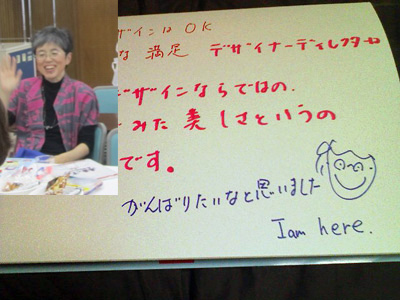 ザインは OK
な 満足 デザイナーディレクタは
デザインならでわの、
みた 美しさというの
です。
がんばりたいなと思いました
I am here.